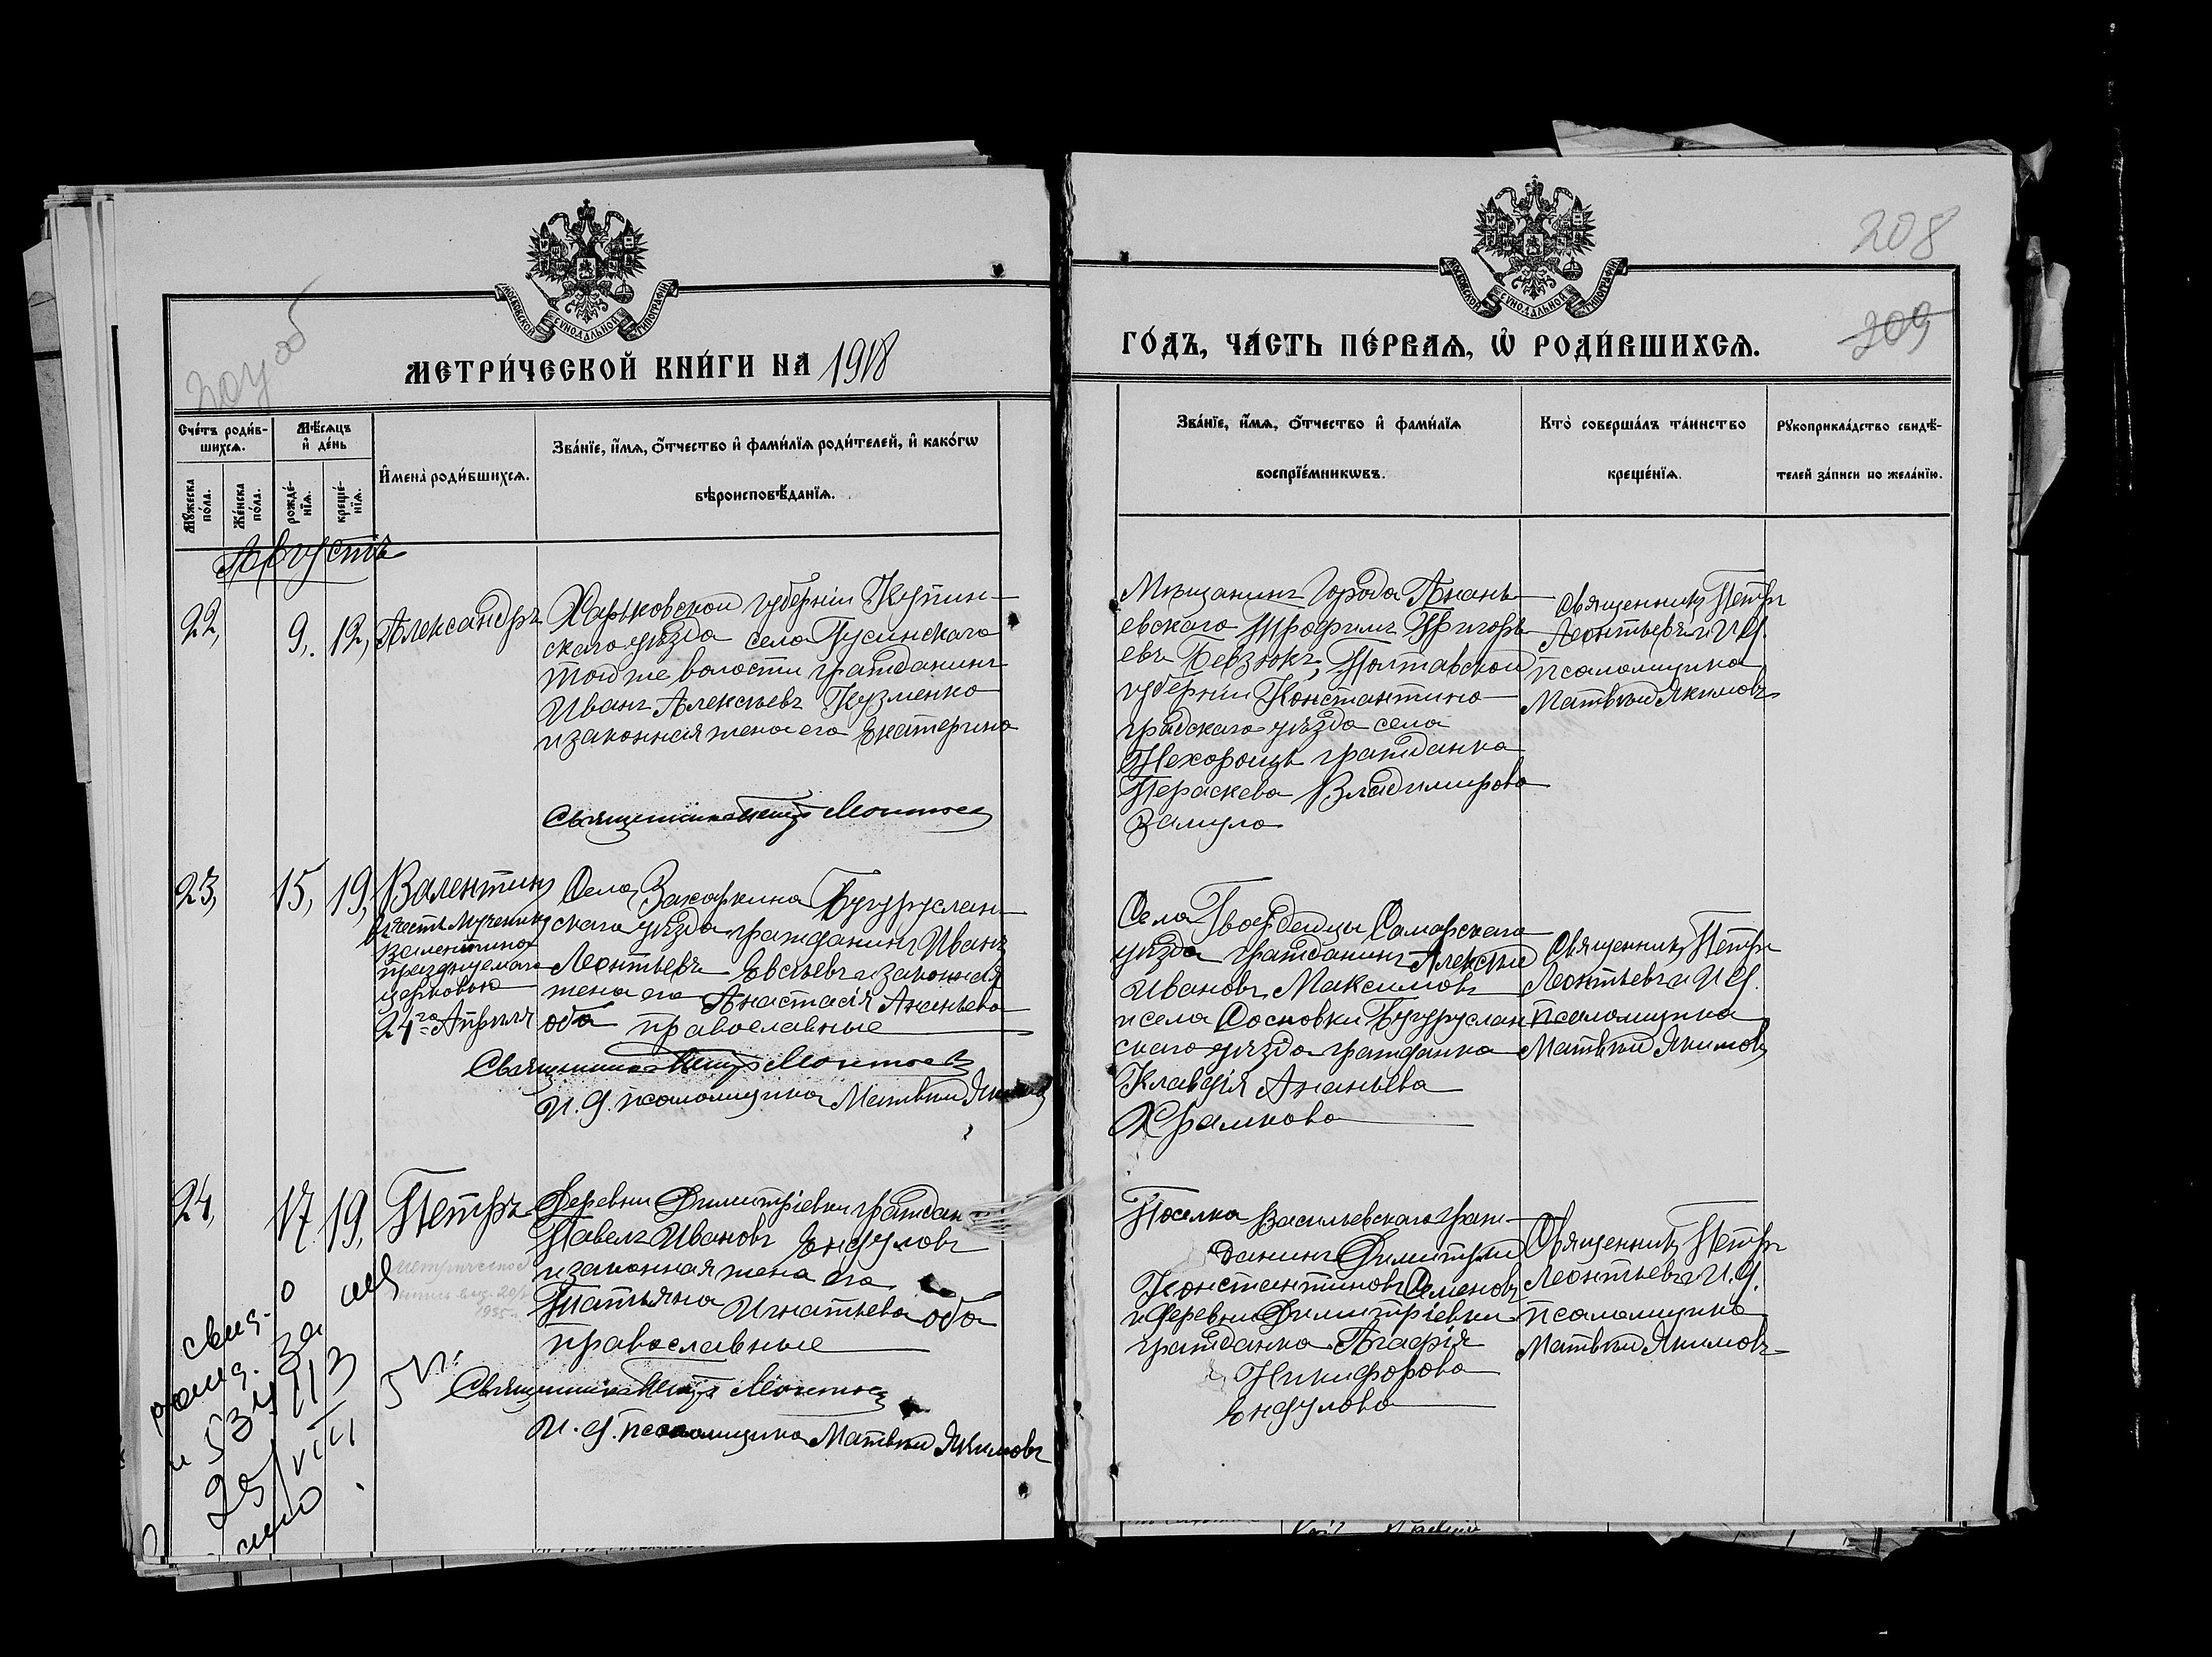 МОСКОВСКОЙ СѴНОДАЛЬНОЙ ТИПОГРАФІИ
МЕТРИ́ЧЕСКОЙ КНИ́ГИ НА 1918
Сче́тъ роди́в-
шихсѧ.
Мѣ́сѧцъ
и҆ де́нь
Мꙋ́жеска
по́ла.
Же́нска
по́ла.
рожде́-
нїѧ.
креще́-
нїѧ.
И҆мена̀ роди́вшихсѧ.
Зва́нїе, и҆́мѧ, ѻ҆́тчество и҆ фами́лїѧ роди́телей, и҆ како́гѡ
вѣроисповѣ́данїѧ.
Августъ
22, 9, 12, Александръ
Харьковской губерніи Купин-
скаго уѣзда села Гусинскаго
той же волости гражданинъ
Иванъ Алексѣевъ Кузменко
и законная жена его Екатерина
Священникъ Петръ Леонтьев
23, 15, 19, Валентинъ
въ честь Мученика
Валентина
празднуемаго
церковью
24го Апрѣля
Села Захаркина Бугуруслан-
скаго уѣзда гражданинъ Иванъ
Леонтьевъ Евсѣевъ и законная
жена его Анастасія Ананьева
оба православные
Священникъ Петръ Леонтьев
И. д. псаломщика Матвѣй Якимовъ
24, 17, 19, Петръ
Деревни Димитріевки граждан
Павелъ Ивановъ Ендуловъ
и законная жена его
Татьяна Игнатьева оба
православные
Священникъ Петръ Леонтьев
И. д. псаломщика Матвѣй Якимовъ
1935
свид.
о
рожд. за
25/VIII
208
209
МОСКОВСКОЙ СѴНОДАЛЬНОЙ ТИПОГРАФІИ
ГО́ДЪ, ЧА́СТЬ ПЕ́РВАѦ, Ѡ҆ РОДИ́ВШИХСѦ.
Зва́нїе, и҆́мѧ, ѻ҆́тчество и҆ фами́лїѧ
воспрїе́мникѡвъ.
Кто̀ соверша́лъ та́инство
креще́нїѧ.
Рꙋкоприкла́дство свидѣ́-
телей за́писи по жела́нїю.
Мѣщанинъ города Анань-
евскаго Трофимъ Григорь
евъ Бевзюкъ, Полтавской
губерніи Константино
градскаго уѣзда села
Нехорощь гражданка
Параскева Владимирова
Замула
Священникъ Петръ
Леонтьевъ и И. д.
псаломщика
Матвѣй Якимовъ
Села Гвардейцы Самарскаго
уѣзда гражданинъ Алексѣй
Ивановъ Максимовъ
и села Сосновки Бугуруслан
скаго уѣзда гражданка
Клавдія Ананьева
Храмкова
Священникъ Петръ
Леонтьевъ и И. д.
псаломщика
Матвѣй Якимовъ
Поселка Васильевскаго граж-
данинъ Димитрій
Константиновъ Семеновъ
и деревни Димитріевки
гражданка Агафія
Никифорова
Ендулова
Священникъ Петръ
Леонтьевъ и И. д.
псаломщика
Матвѣй Якимовъ